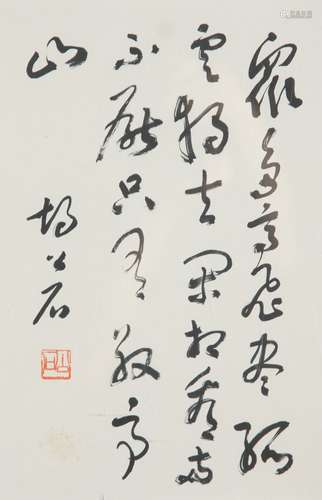 眾鳥高飛盡孤
雲獨去閒相看兩
不厭只有敬亭
山
胡公石